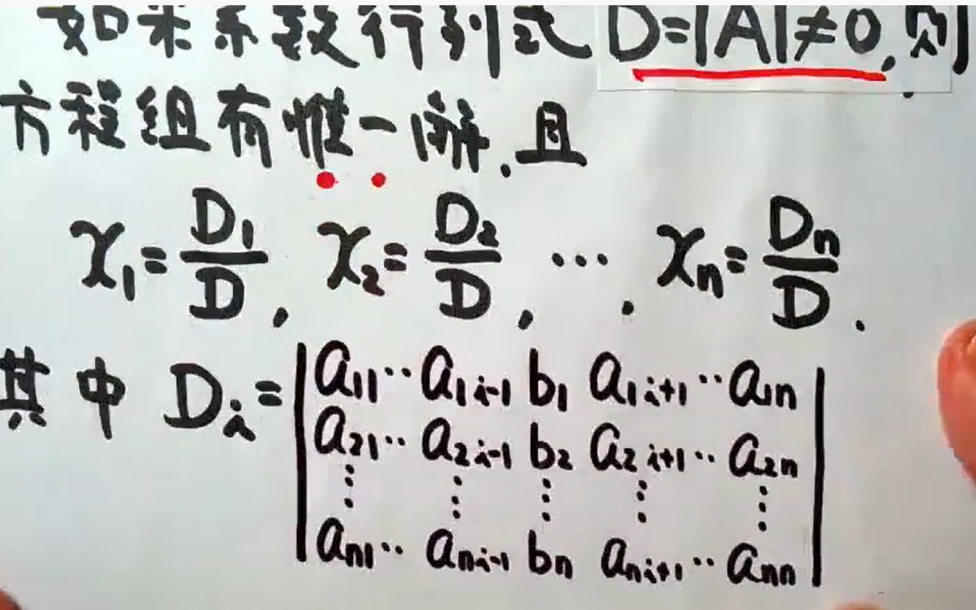 如果系数行列式 D=|A|≠0,则
方程组有惟一解.且
x₁=D₁/D, x₂=D₂/D, ⋯, xₙ=Dₙ/D.
其中 Dᵢ=
a₁₁‥a₁ᵢ₋₁ b₁ a₁ᵢ₊₁‥a₁ₙ
a₂₁‥a₂ᵢ₋₁ b₂ a₂ᵢ₊₁‥a₂ₙ
⋮ ⋮ ⋮ ⋮ ⋮
aₙ₁‥aₙᵢ₋₁ bₙ aₙᵢ₊₁‥aₙₙ